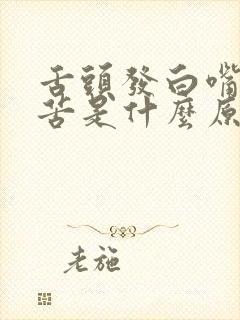 舌頭發白嘴
苦是什麼原
老施